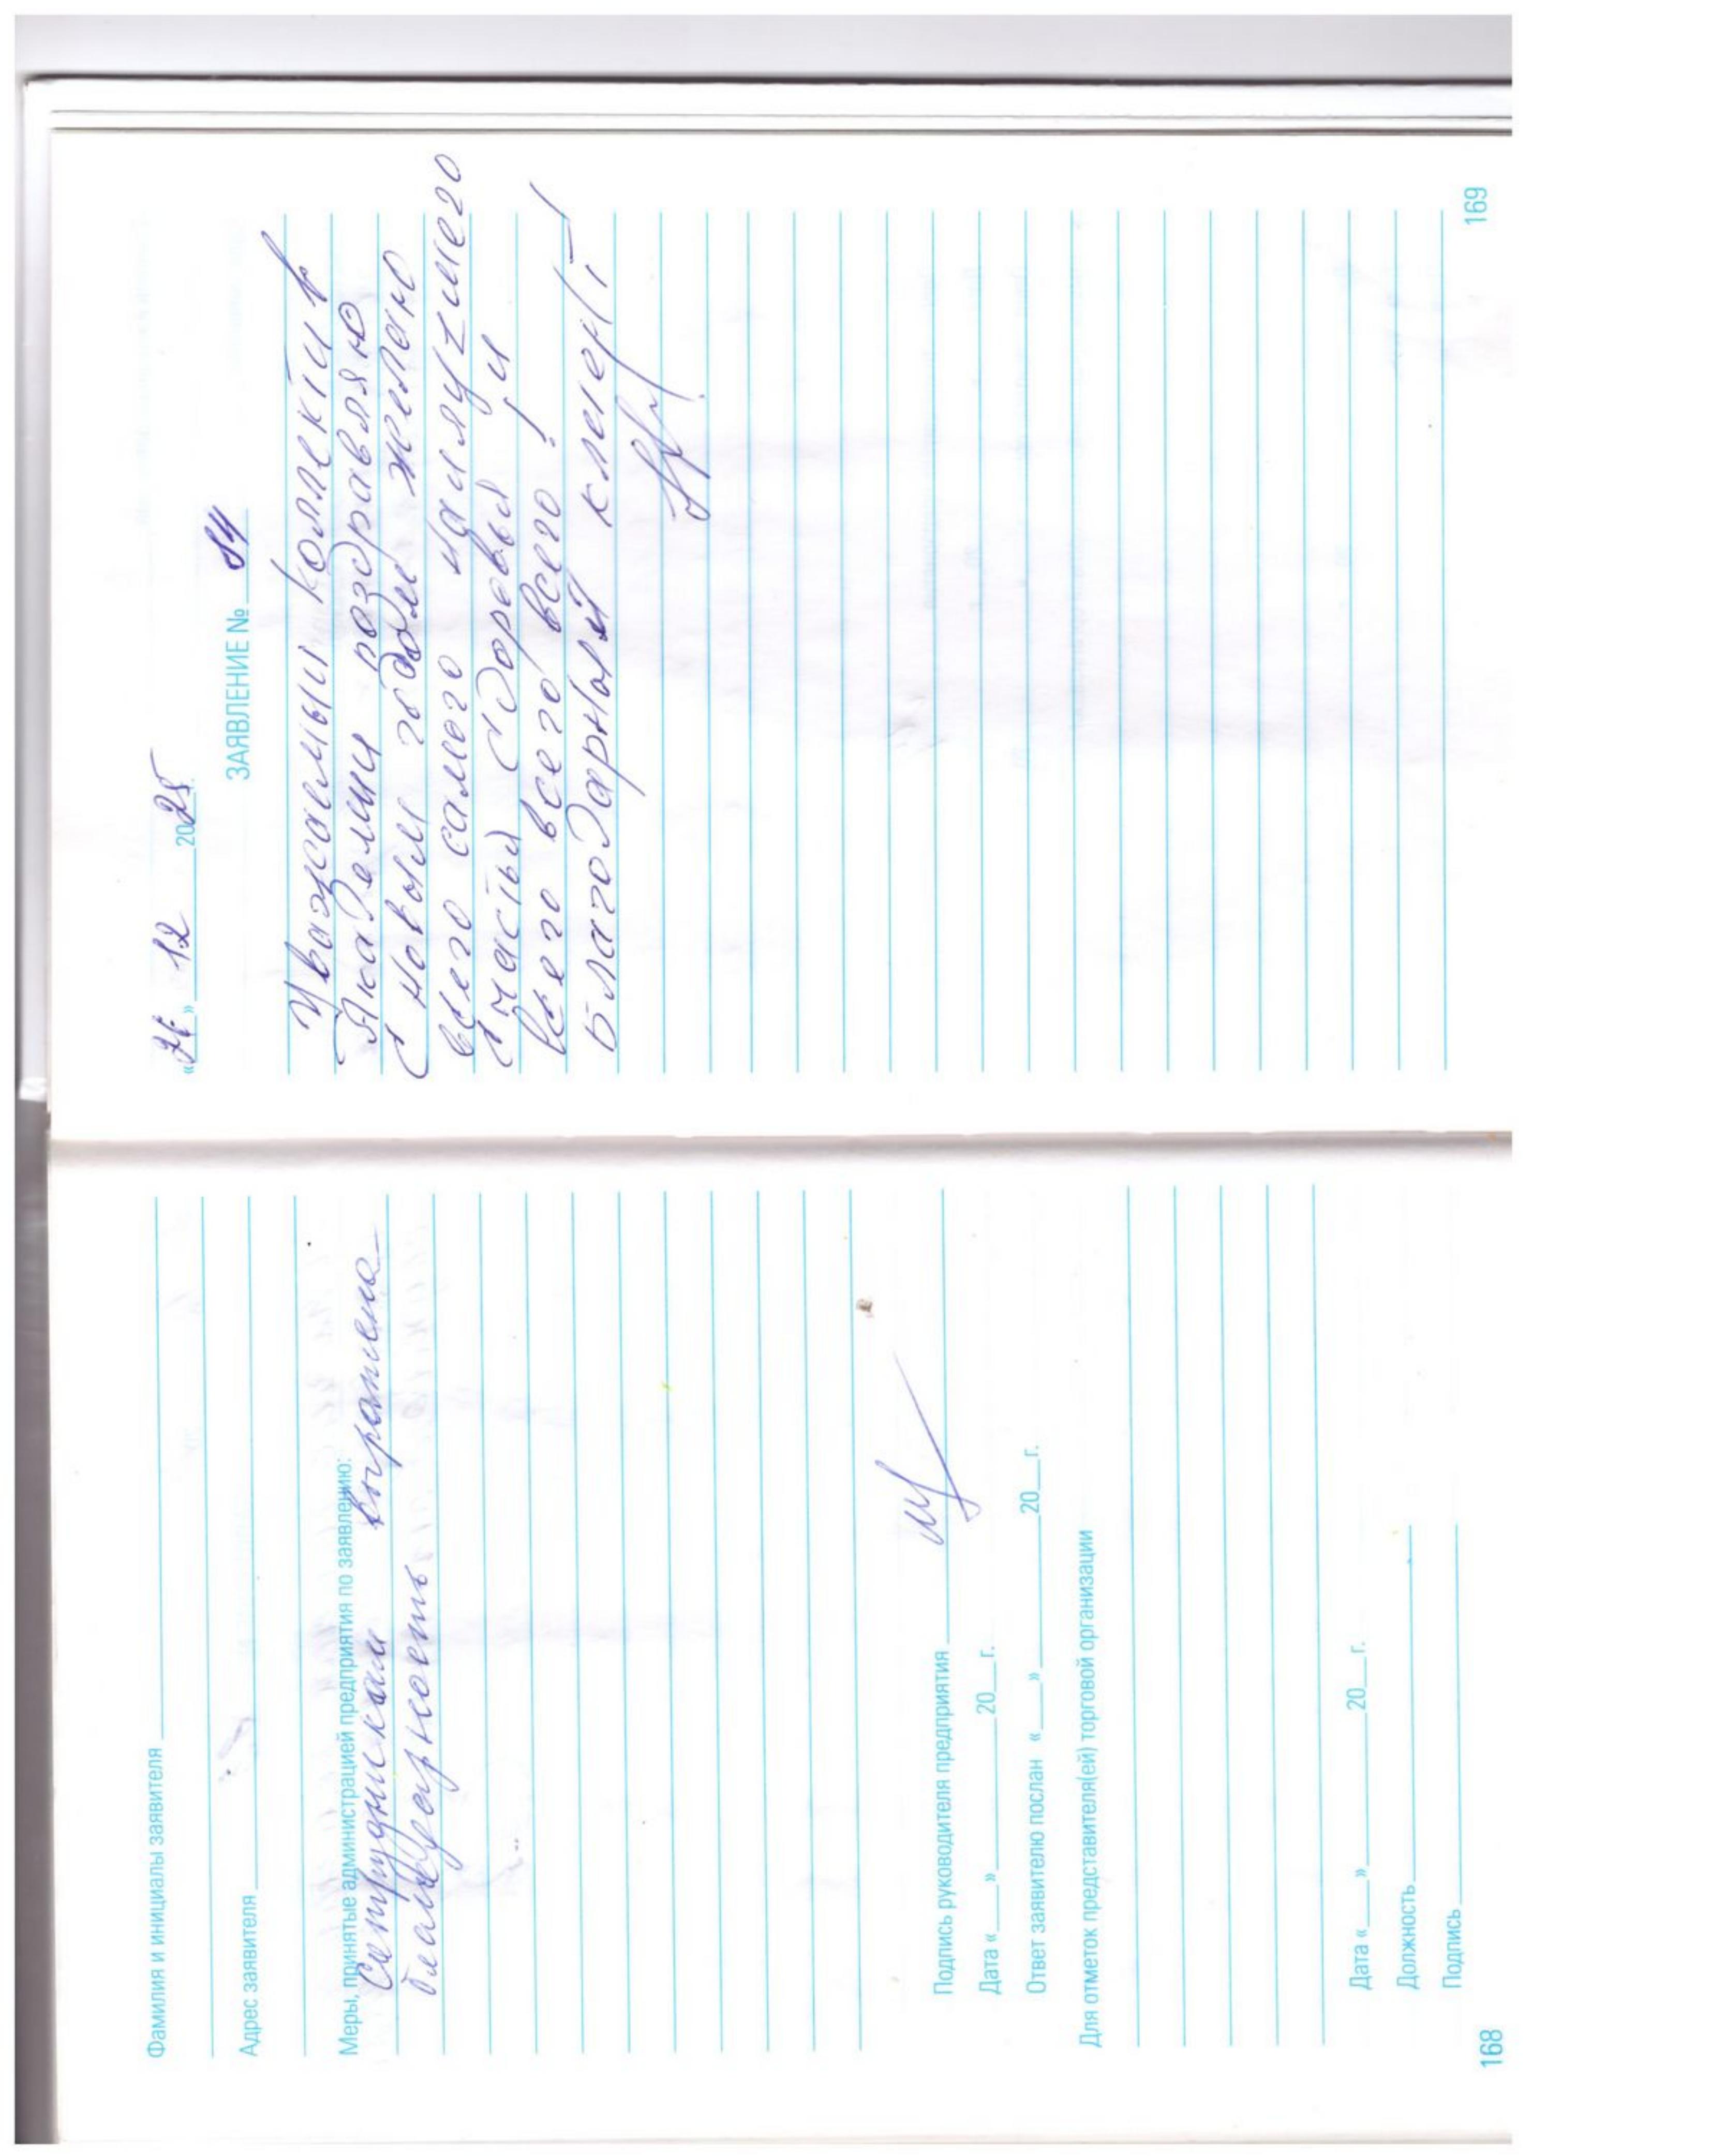 Фамилия и инициалы заявителя
Адрес заявителя
Меры, принятые администрацией предприятия по заявлению:
Сотрудникам выражена
благодарность
Подпись руководителя предприятия
Дата «___»________20__г.
Ответ заявителю послан «___»________20__г.
Для отметок представителя(ей) торговой организации
Дата «___»________20__г.
Должность
Подпись
168
» 12 2025
ЗАЯВЛЕНИЕ № 84
Уважаемый коллектив
Академии поздравляю
С новым годом желаю
всего самого наилучшего
Счастья Здоровья! и
всего всего всего всего!
Благодарный клиент
169